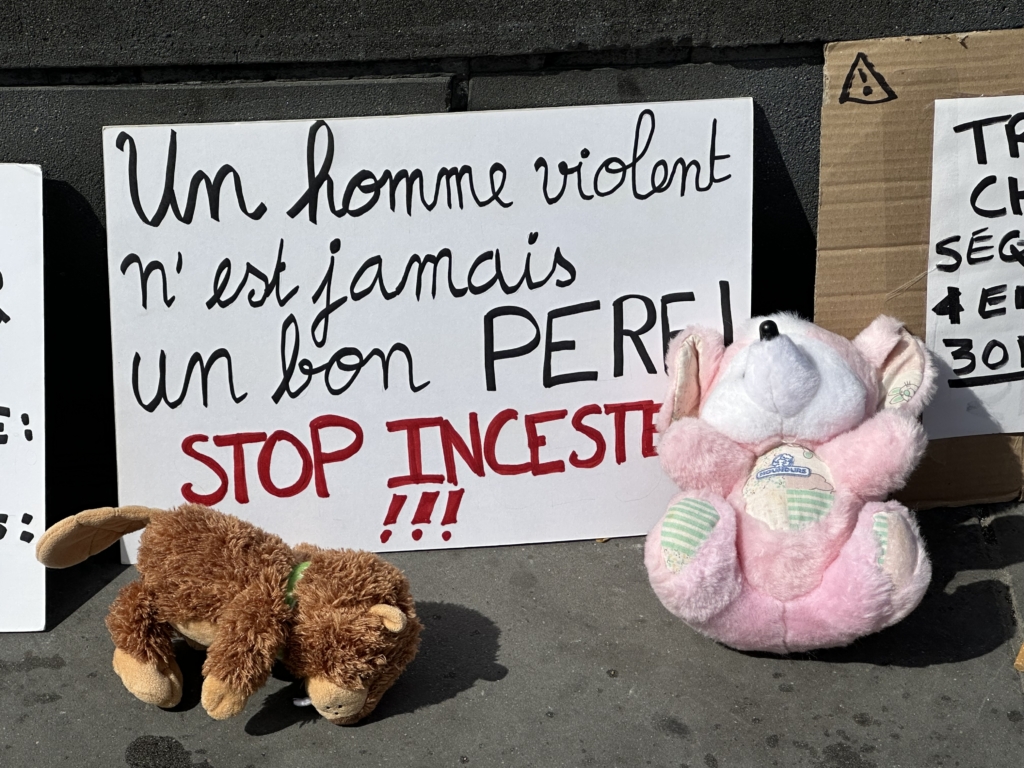 Un homme violent
n'est jamais
un bon PERE!
STOP INCESTE
!!!
NOUNOURS
30